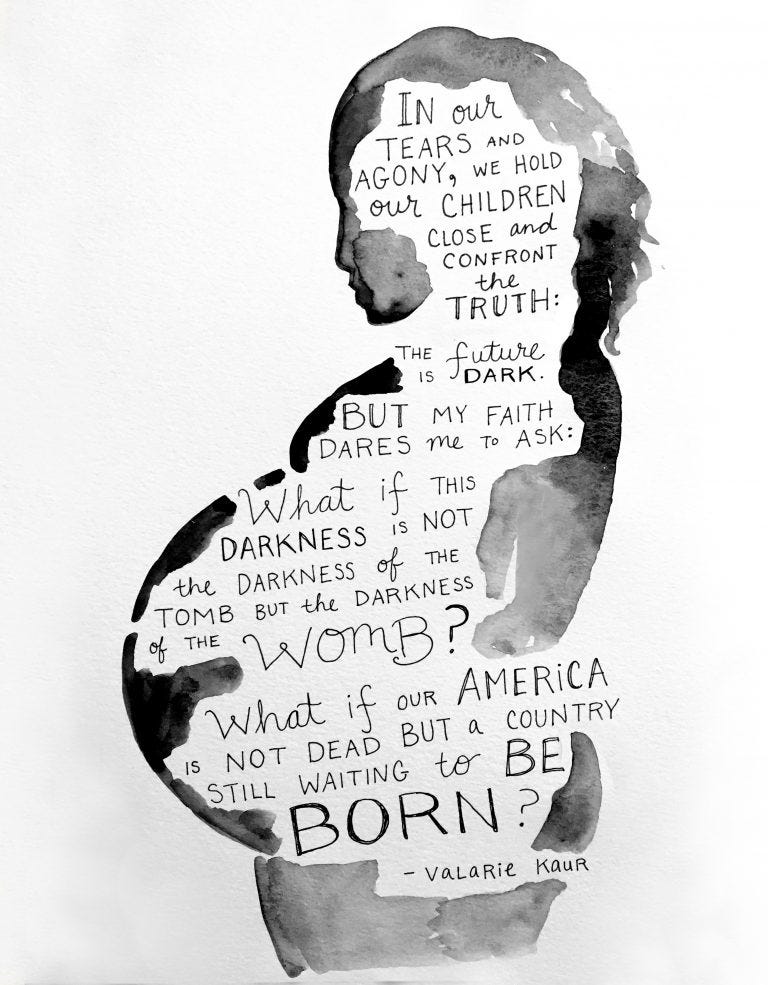 IN our
TEARS AND
AGONY, WE HOLD
our CHILDREN
CLOSE and
CONFRONT
the
TRUTH:
THE future
IS DARK.
BUT MY FAITH
DARES me TO ASK:
What if THIS
DARKNESS IS NOT
the DARKNESS of THE
TOMB BUT the DARKNESS
of THE WOMB?
What if OUR AMERiCA
IS NOT DEAD BUT a COUNTRY
STILL WAITING to BE
BORN?
- VaLaRie KauR